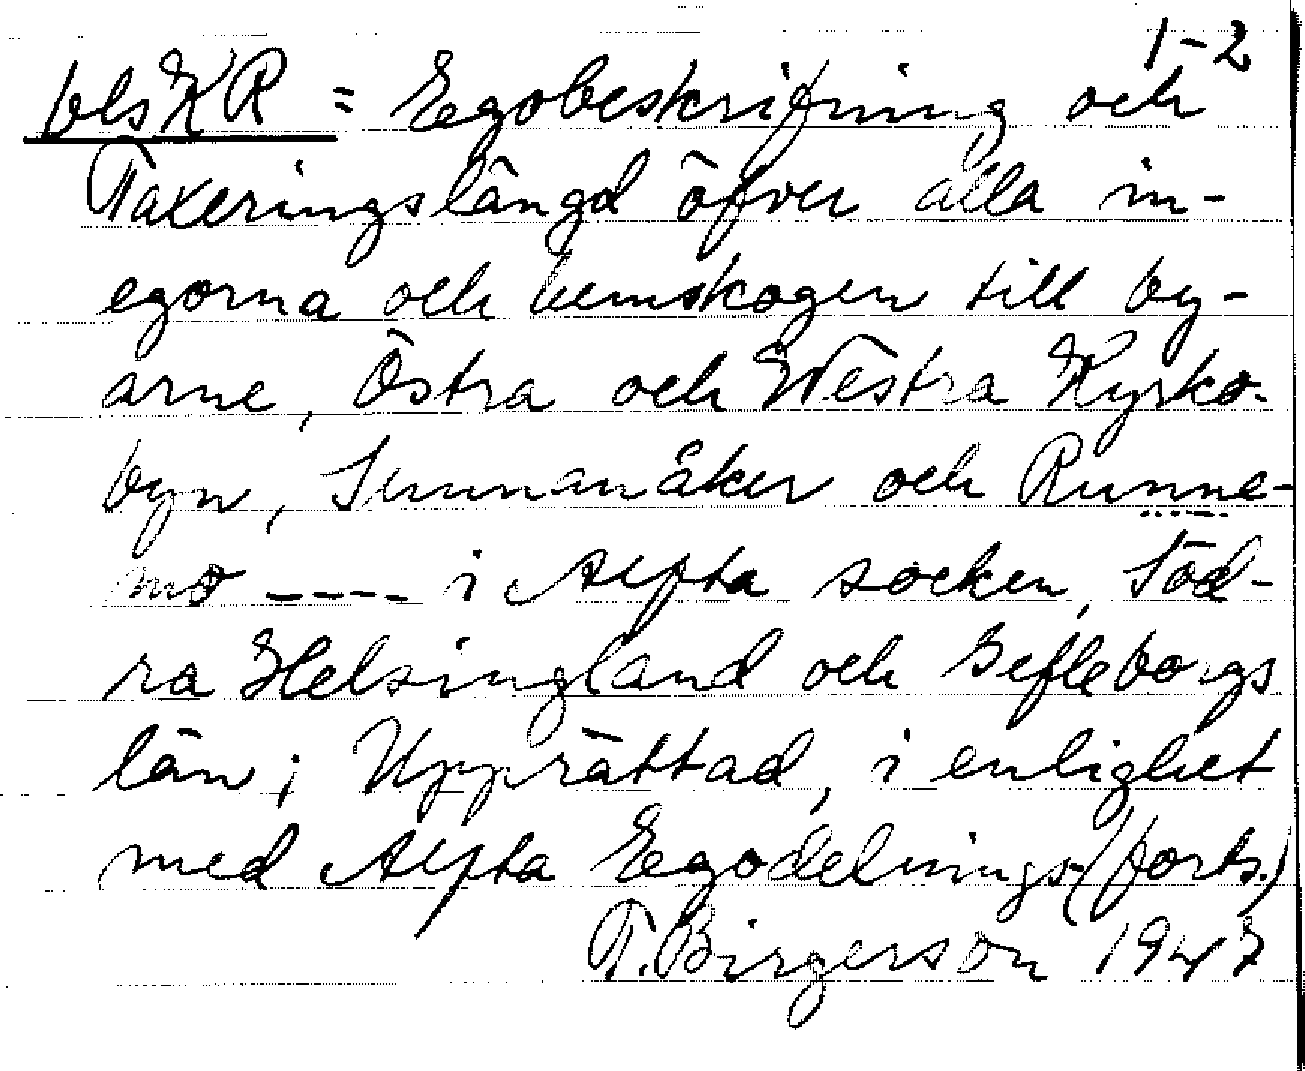 1-2
blsKR = Egobeskrifning och
Taxeringslängd öfver alla in-
egorna och hemskogen till by-
arne, Östra och Westra Kyrko-
byn, Sunnanåker och Runne-
mo ---- i Alfta socken, Söd-
ra Helsingland och Gefleborgs
län; Upprättad, i enlighet
med Alfta Egodelnings-(forts.)
T. Birgerson 1947